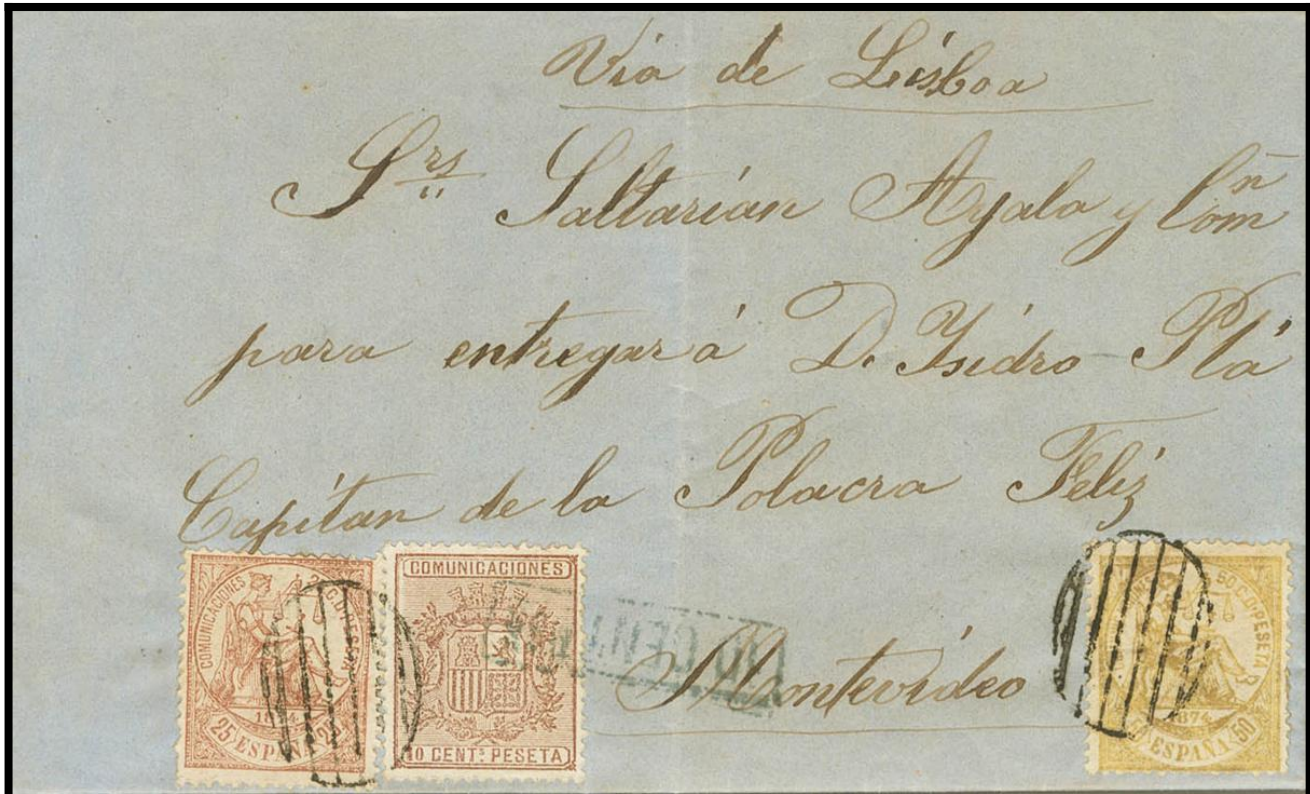 Via de Lisboa
Srs Saltarián Ayala y Comn
para entregar á D. Ysidro Plá
Capitan de la Polacra Feliz
Montevideo
COMUNICACIONES
25 ESPAÑA 25
COMUNICACIONES
10 CENTS PESETA
10 CENT
50 C. D PESETA
1874
50 ESPAÑA 50